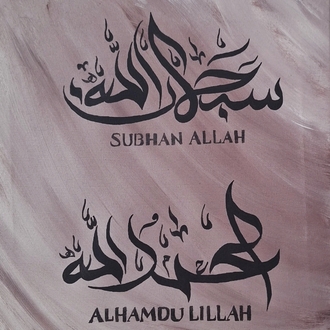 سبحان الله
SUBHAN ALLAH
الحمد لله
ALHAMDU LILLAH